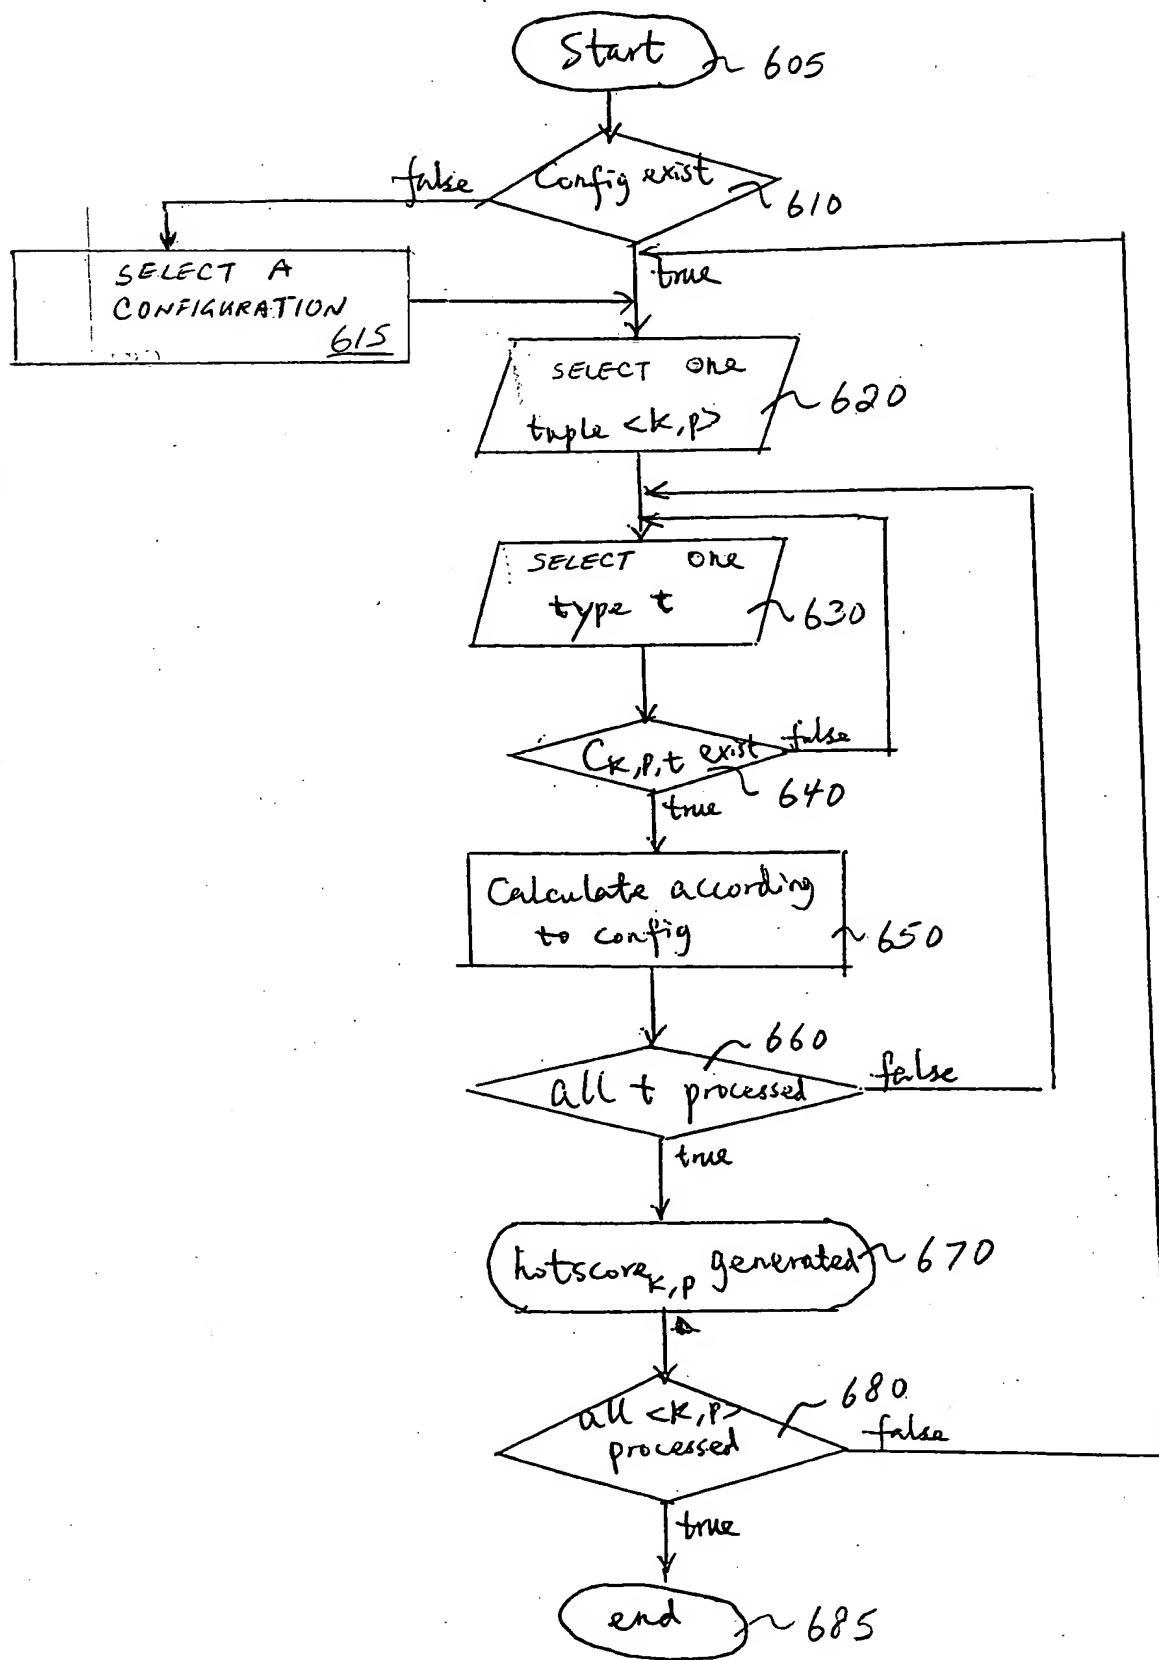 Start
605
Config exist
false
610
true
SELECT A
CONFIGURATION
615
SELECT one
tuple <k,p>
620
SELECT one
type t
630
Ck,p,t exist
false
640
true
Calculate according
to config
650
660
all t processed
false
true
hotscorek,p generated
670
all <k,p>
processed
680
false
true
end
685